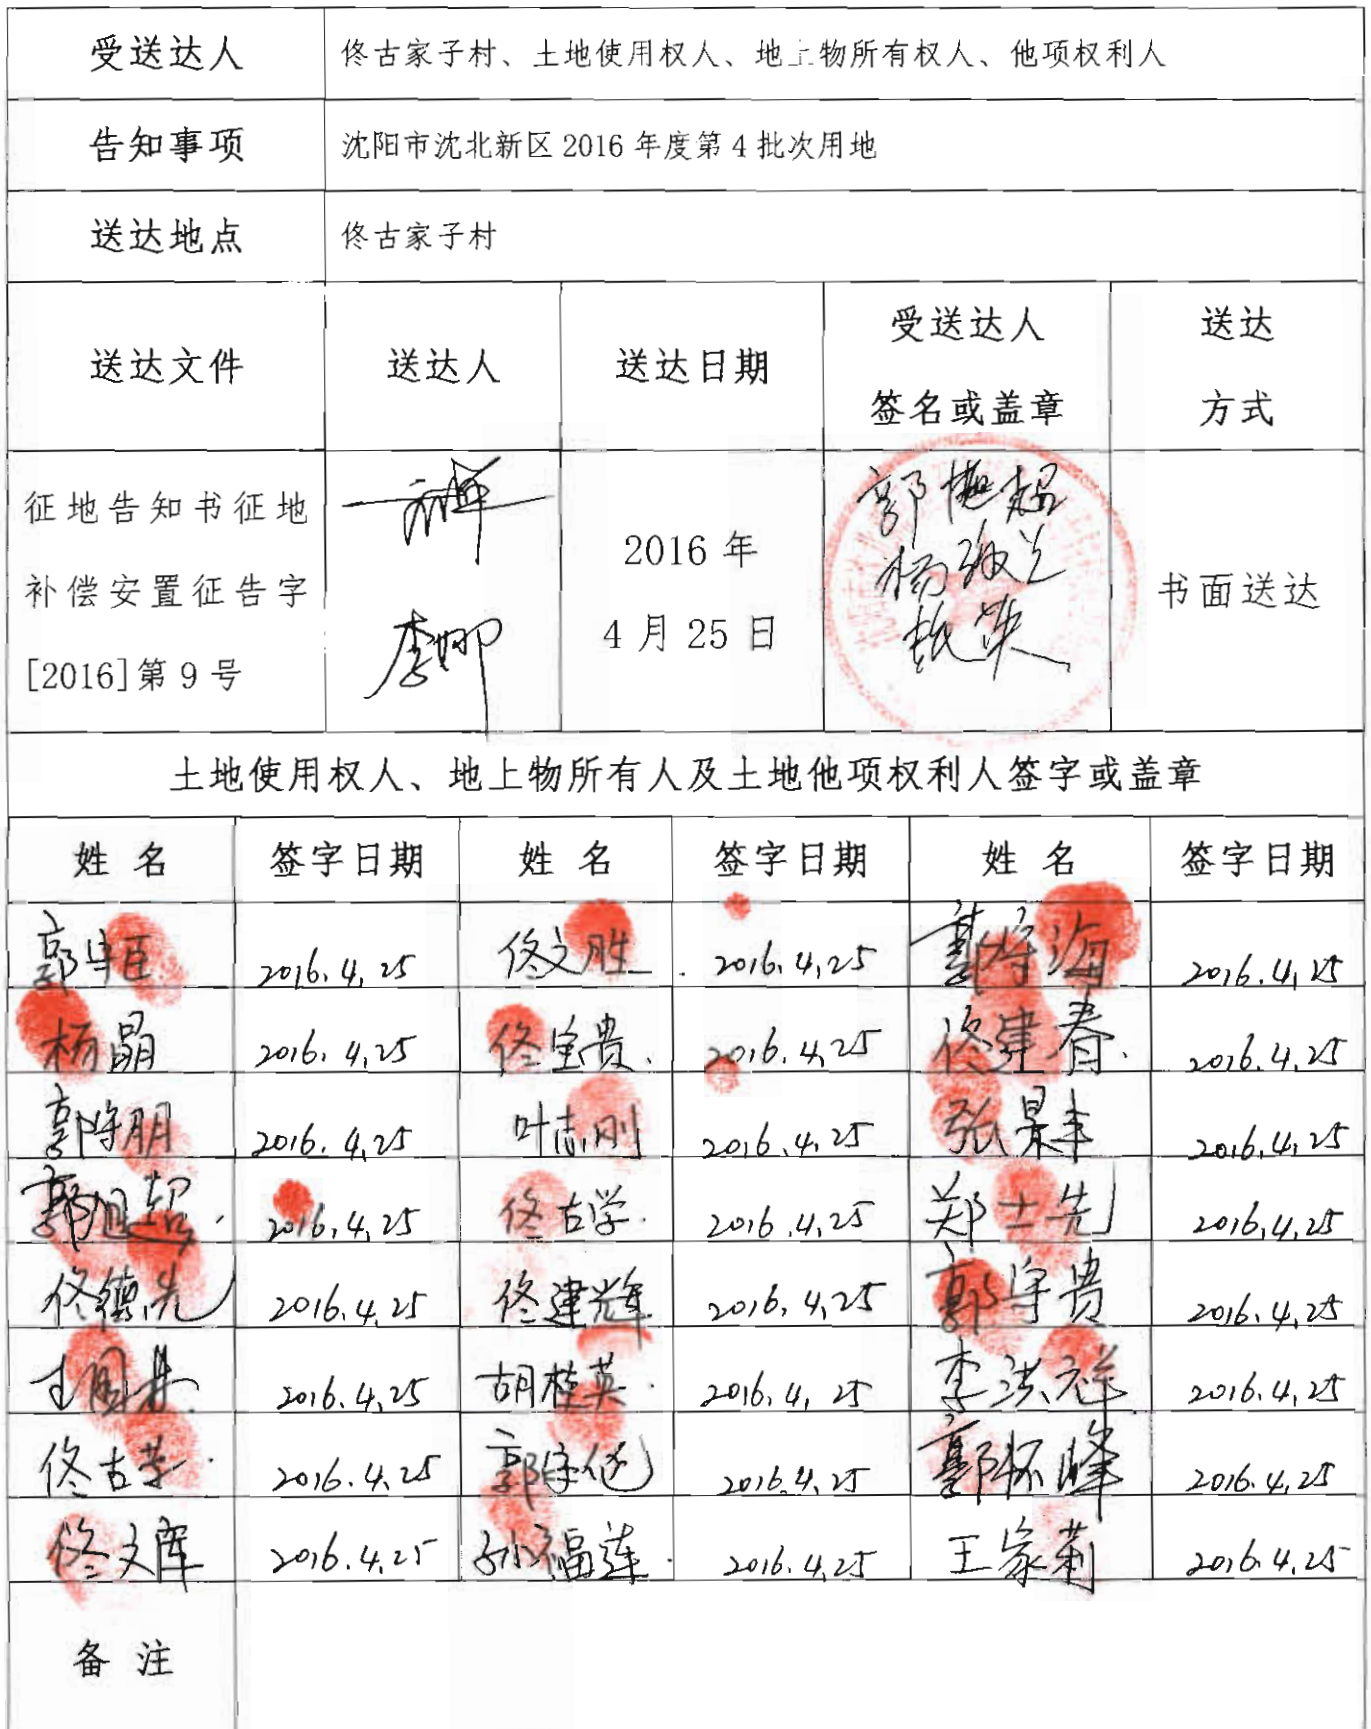 受送达人 佟古家子村、土地使用权人、地上物所有权人、他项权利人
告知事项 沈阳市沈北新区 2016 年度第 4 批次用地
送达地点 佟古家子村
送达文件 送达人 送达日期 受送达人 签名或盖章 送达 方式
征地告知书征地
补偿安置征告字
[2016]第 9 号
李娜
2016 年
4 月 25 日
郭艳超
书面送达
土地使用权人、地上物所有人及土地他项权利人签字或盖章
姓 名 签字日期 姓 名 签字日期 姓 名 签字日期
郭守臣 2016.4.25 佟文胜 2016.4.25 郭守海 2016.4.25
杨晶 2016.4.25 佟宝贵 2016.4.25 佟建春 2016.4.25
郭守朋 2016.4.25 叶志刚 2016.4.25 张景丰 2016.4.25
郭旭超 2016.4.25 佟古学 2016.4.25 郑士先 2016.4.25
佟德先 2016.4.25 佟建辉 2016.4.25 郭守贵 2016.4.25
2016.4.25 胡桂英 2016.4.25 李洪祥 2016.4.25
佟古 2016.4.25 郭守 2016.4.25 郭怀峰 2016.4.25
佟文库 2016.4.25 孙福莲 2016.4.25 王家菊 2016.4.25
备 注